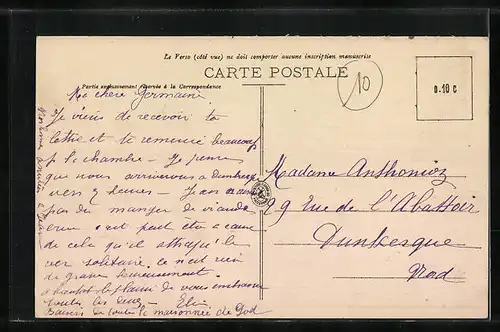 Le Verso (côté vue) ne doit comporter aucune inscription manuscrite
CARTE POSTALE
Partie exclusivement réservée à la Correspondance
10
0.10 c
Ma chère Germaine
Je viens de recevoir ta
lettre et te remercie beaucoup
p^r la chambre - Je pense
que nous arriverons à Dunkerque
vers 7 heures - Je
pas du manger de viande
crue c'est peut être a cause
de cela qu'il attrapé le
ver solitaire. ce n'est rien
de grave heureusement.
a bientôt le plaisir de vous embrasser
toutes les deux - Elie
Baisers de toute la maisonnée de God
Madame Anthonioz
29 Rue de l'Abattoir
Dunkerque
Nord